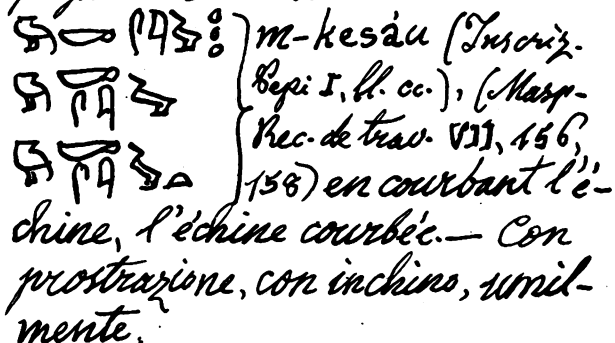 m-kesáu (Inscriz.
Pepi I, ll. cc.), (Masp-
Rec. de trav. VII, 156,
158) en courbant l'é-
chine, l'échine courbée.— Con
prostrazione, con inchino, umil-
mente.